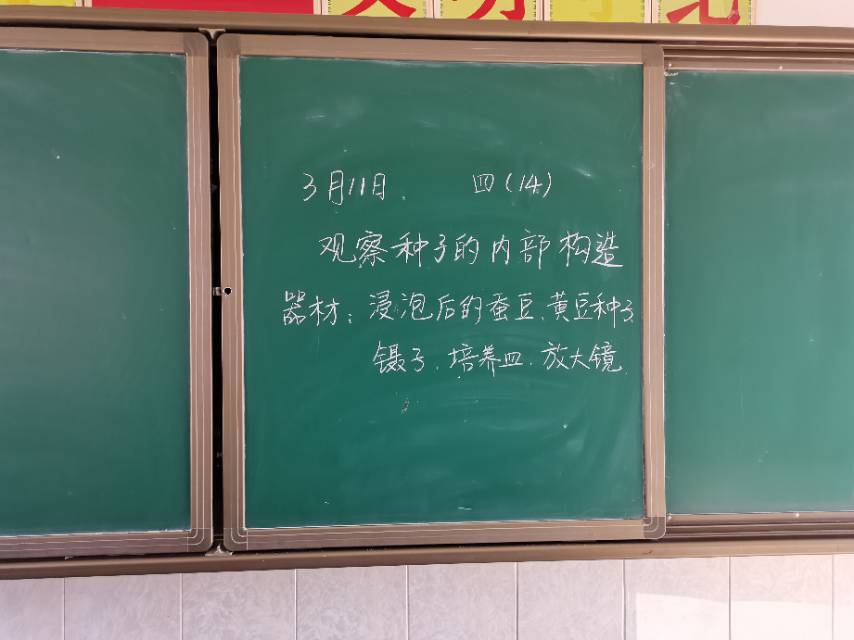 3月11日. 四(14)
观察种子的内部构造
器材:浸泡后的蚕豆、黄豆种子、
镊子、培养皿、放大镜